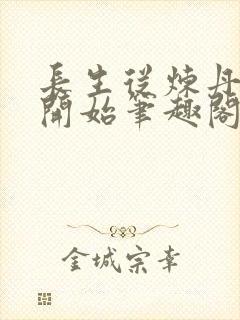 長生從煉丹
開始筆趣閣
金城宗幸